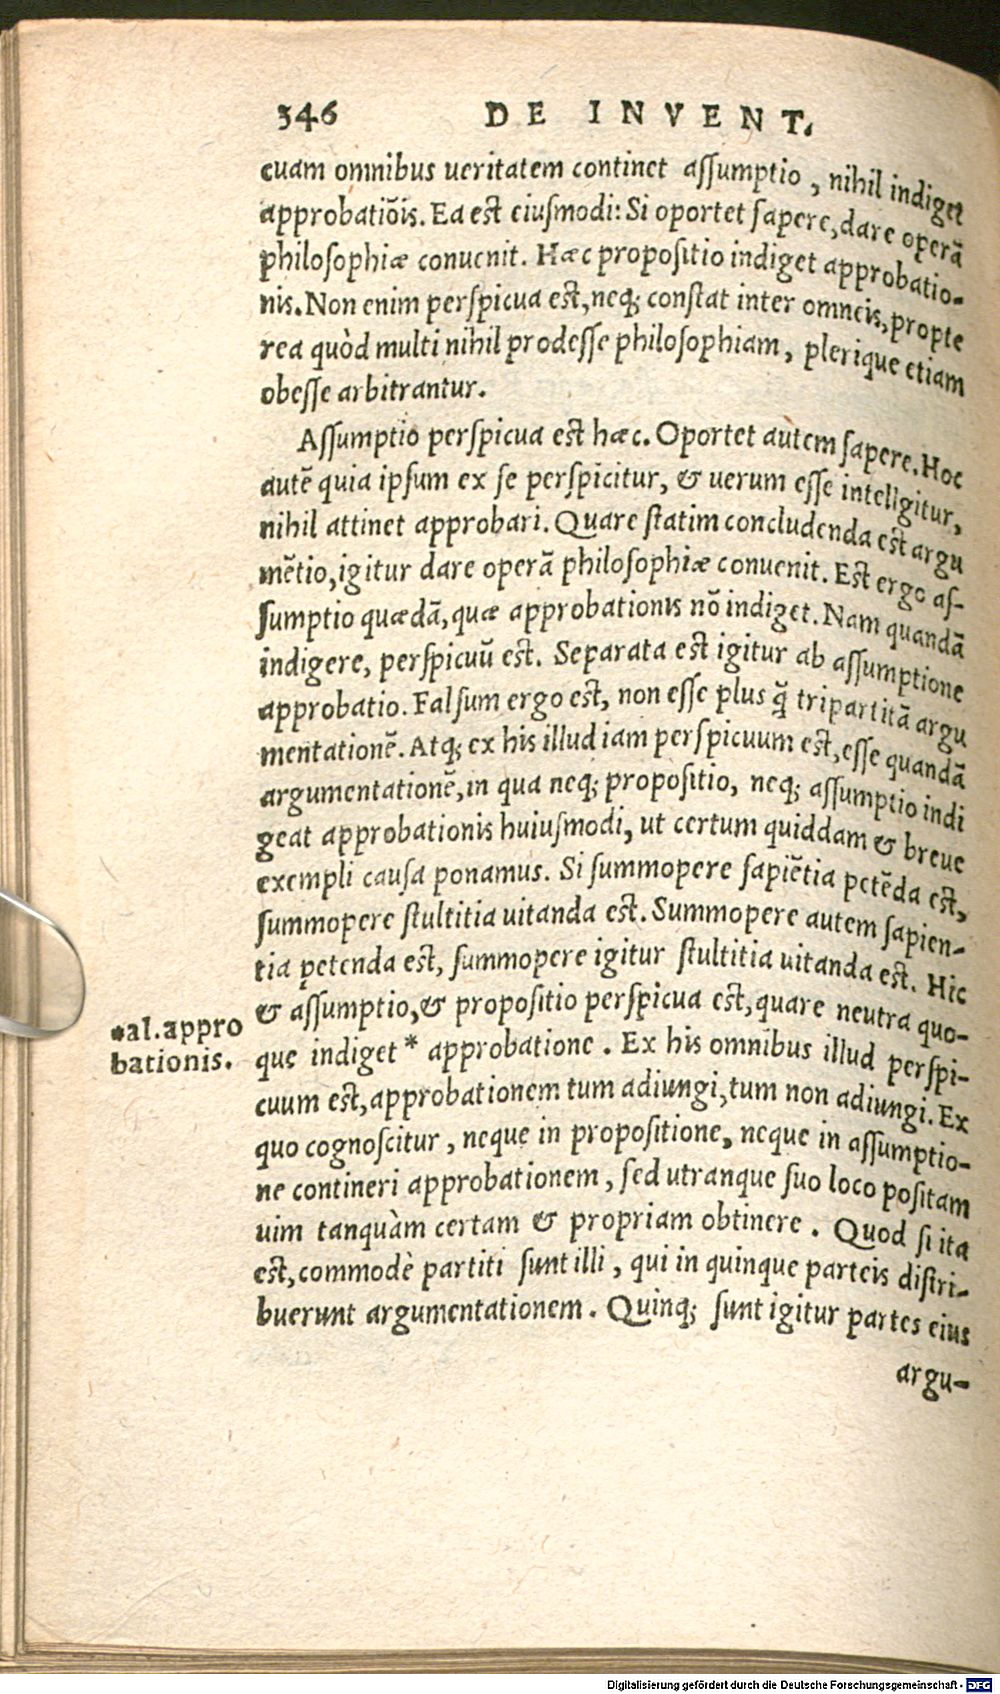 346 DE INVENT.
cuam omnibus ueritatem continet assumptio, nihil indiget
approbatiõis. Ea est eiusmodi: Si oportet sapere, dare operã
philosophiæ conuenit. Hæc propositio indiget approbatio-
nis. Non enim perspicua est, neq; constat inter omneis, propte
rea quòd multi nihil prodesse philosophiam, plerique etiam
obesse arbitrantur.
Assumptio perspicua est hæc. Oportet autem sapere. Hoc
autẽ quia ipsum ex se perspicitur, & uerum esse intelligitur,
nihil attinet approbari. Quare statim concludenda est argu
mẽtio, igitur dare operã philosophiæ conuenit. Est ergo as-
sumptio quædã, quæ approbationis nõ indiget. Nam quandã
indigere, perspicuũ est. Separata est igitur ab assumptione
approbatio. Falsum ergo est, non esse plus q̃ tripartitã argu
mentationẽ. Atq; ex his illud iam perspicuum est, esse quandã
argumentationẽ, in qua neq; propositio, neq; assumptio indi
geat approbationis huiusmodi, ut certum quiddam & breue
exempli causa ponamus. Si summopere sapiẽtia petẽda est,
summopere stultitia uitanda est. Summopere autem sapien-
tia petenda est, summopere igitur stultitia uitanda est. Hic
& assumptio, & propositio perspicua est, quare neutra quo-
*al. appro
bationis.
que indiget * approbatione. Ex his omnibus illud perspi-
cuum est, approbationem tum adiungi, tum non adiungi. Ex
quo cognoscitur, neque in propositione, neque in assumptio-
ne contineri approbationem, sed utranque suo loco positam
uim tanquàm certam & propriam obtinere. Quod si ita
est, commodè partiti sunt illi, qui in quinque parteis distri-
buerunt argumentationem. Quinq; sunt igitur partes eius
argu-
Digitalisierung gefördert durch die Deutsche Forschungsgemeinschaft - DFG